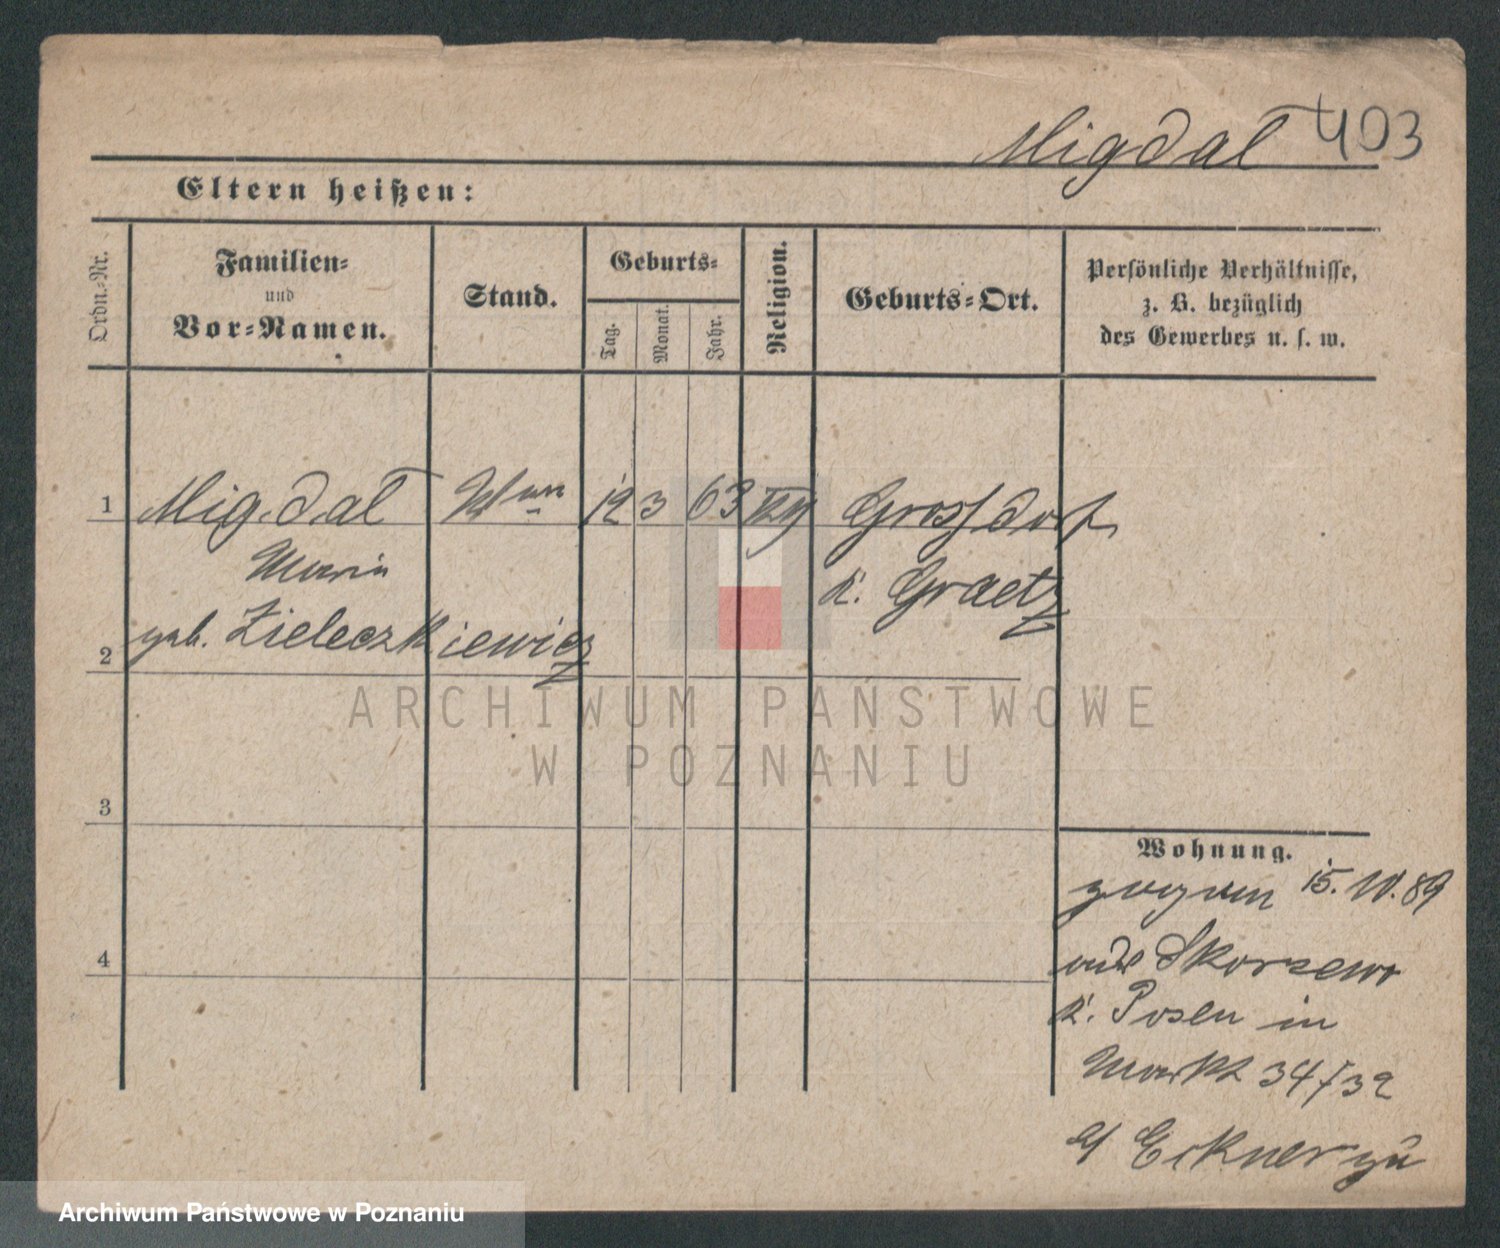 Migdal 403
Eltern heißen:
Ordn.-Nr.
Familien-
und
Vor-Namen.
Stand.
Geburts-
Tag.
Monat.
Jahr.
Religion.
Geburts-Ort.
Persönliche Verhältnisse,
z. B. bezüglich
des Gewerbes u. s. w.
1 Migdal Wwe 12 3 63 Grossdorf
Maria
k. Graetz
geb. Zieleczkiewicz
2
3
4
Wohnung.
zugezogen 15. 10. 89
aus Skorzewo
k. Posen in
Markt 34/32
b/ Eckner
ARCHIWUM PAŃSTWOWE
W POZNANIU
Archiwum Państwowe w Poznaniu